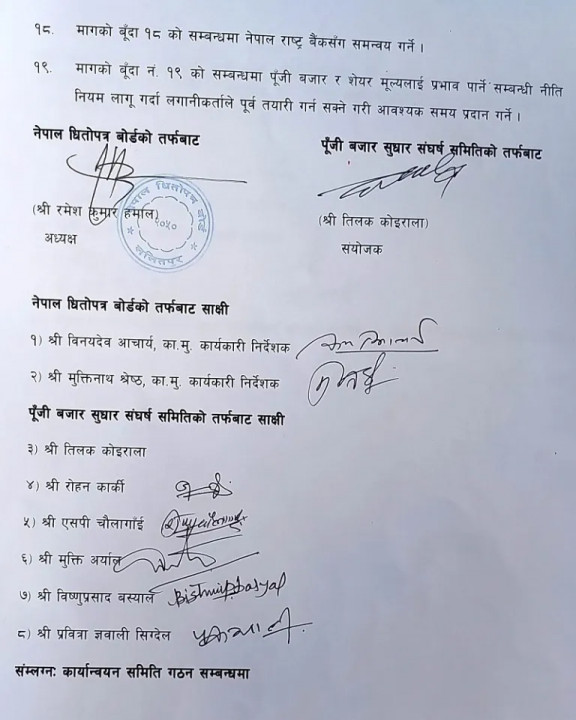 १८. मागको बूँदा १८ को सम्बन्धमा नेपाल राष्ट्र बैंकसँग समन्वय गर्ने ।
१९. मागको बूँदा नं. १९ को सम्बन्धमा पूँजी बजार र शेयर मूल्यलाई प्रभाव पार्ने सम्बन्धी नीति
नियम लागू गर्दा लगानीकर्ताले पूर्व तयारी गर्न सक्ने गरी आवश्यक समय प्रदान गर्ने ।
नेपाल धितोपत्र बोर्डको तर्फबाट
(श्री रमेश कुमार हमाल)
अध्यक्ष
नेपाल धितोपत्र बोर्ड
२०५०
ललितपुर
पूँजी बजार सुधार संघर्ष समितिको तर्फबाट
(श्री तिलक कोइराला)
संयोजक
नेपाल धितोपत्र बोर्डको तर्फबाट साक्षी
१) श्री विनयदेव आचार्य, का.मु. कार्यकारी निर्देशक
२) श्री मुक्तिनाथ श्रेष्ठ, का.मु. कार्यकारी निर्देशक
पूँजी बजार सुधार संघर्ष समितिको तर्फबाट साक्षी
३) श्री तिलक कोइराला
४) श्री रोहन कार्की
५) श्री एसपी चौलागाँई
६) श्री मुक्ति अर्याल
७) श्री विष्णुप्रसाद बस्याल
८) श्री प्रवित्रा ज्ञवाली सिग्देल
संम्लग्नः कार्यान्वयन समिति गठन सम्बन्धमा